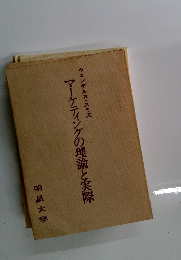 ウェンデル・スミス
マーケティングの理論と実際
明昌大学